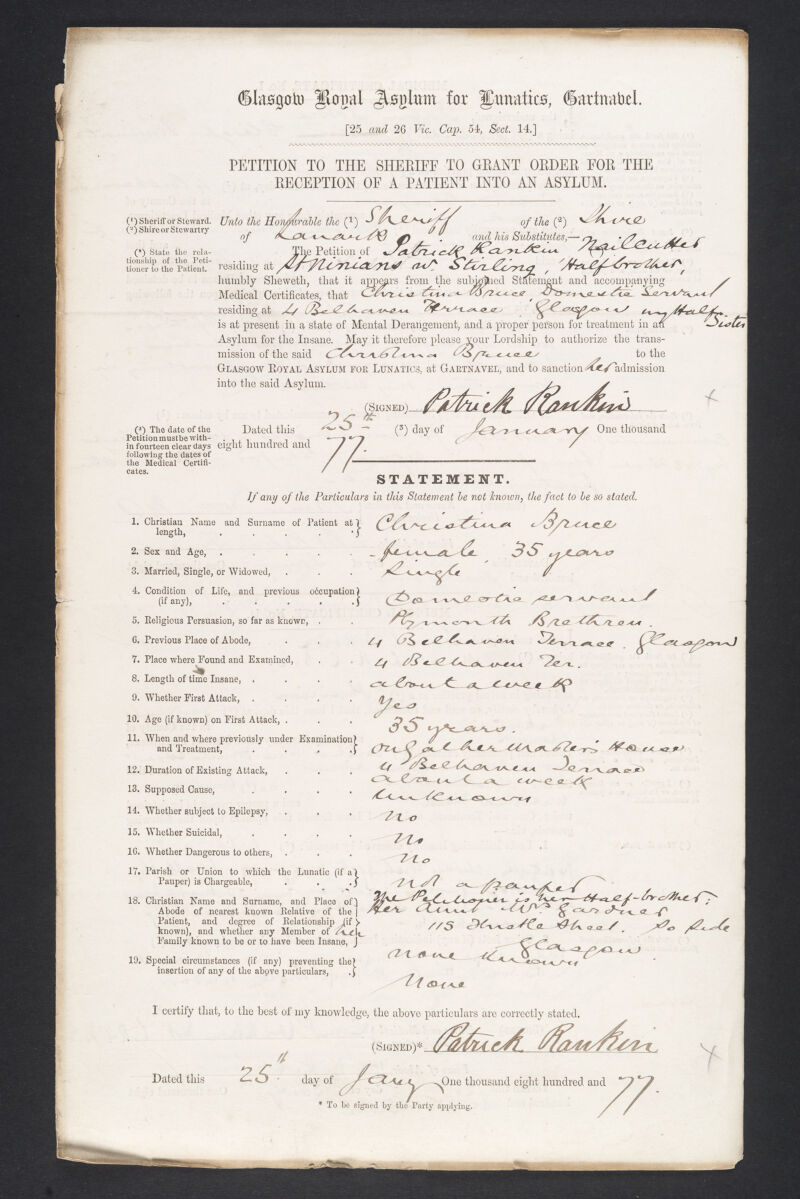 Glasgow Royal Asylum for Lunatics, Gartnavel.
[25 and 26 Vic. Cap. 54, Sect. 14.]
PETITION TO THE SHERIFF TO GRANT ORDER FOR THE
RECEPTION OF A PATIENT INTO AN ASYLUM.
(¹) Sheriff or Steward.
(²) Shire or Stewartry
Unto the Honourable the (¹) Sheriff of the (²) Shire
of Lanark and his Substitutes,—
(*) State the rela-
tionship of the Peti-
tioner to the Patient.
The Petition of Patrick Rankin Nailcutter
residing at St Ninians nr Stirling, Halfbrother,
humbly Sheweth, that it appears from the subjoined Statement and accompanying
Medical Certificates, that Christina Bruce, Domestic Servant
residing at 4 Belhaven Terrace Glasgow my Half-Sister
is at present in a state of Mental Derangement, and a proper person for treatment in an
Asylum for the Insane. May it therefore please your Lordship to authorize the trans-
mission of the said Christina Bruce to the
GLASGOW ROYAL ASYLUM FOR LUNATICS, at GARTNAVEL, and to sanction her admission
into the said Asylum.
(SIGNED) Patrick Rankin
(³) The date of the
Petition must be with-
in fourteen clear days
following the dates of
the Medical Certifi-
cates.
Dated this 25th (³) day of January One thousand
eight hundred and 77.
STATEMENT.
If any of the Particulars in this Statement be not known, the fact to be so stated.
1. Christian Name and Surname of Patient at length, Christina Bruce
2. Sex and Age, female, 35 years
3. Married, Single, or Widowed, Single
4. Condition of Life, and previous occupation (if any), Domestic servant
5. Religious Persuasion, so far as known, Plymouth Brethren.
6. Previous Place of Abode, 4 Belhaven Terrace. Glasgow
7. Place where Found and Examined, 4 Belhaven Ter.
8. Length of time Insane, about a week
9. Whether First Attack, Yes
10. Age (if known) on First Attack, 35 years.
11. When and where previously under Examination and Treatment, only at her Master's House
4 Belhaven Terrace
12. Duration of Existing Attack, about a week
13. Supposed Cause, Unknown
14. Whether subject to Epilepsy, No
15. Whether Suicidal, No
16. Whether Dangerous to others, No
17. Parish or Union to which the Lunatic (if a Pauper) is Chargeable, not a pauper
18. Christian Name and Surname, and Place of
Abode of nearest known Relative of the
Patient, and degree of Relationship (if
known), and whether any Member of her
Family known to be or to have been Insane,
The Petitioner is her Half-brother;
Her Aunt Mrs Gardner
115 Thistle Street. So Side
Glasgow.
none known
19. Special circumstances (if any) preventing the insertion of any of the above particulars, None
I certify that, to the best of my knowledge, the above particulars are correctly stated.
(SIGNED)* Patrick Rankin
Dated this 25th day of Jany One thousand eight hundred and 77.
* To be signed by the Party applying.